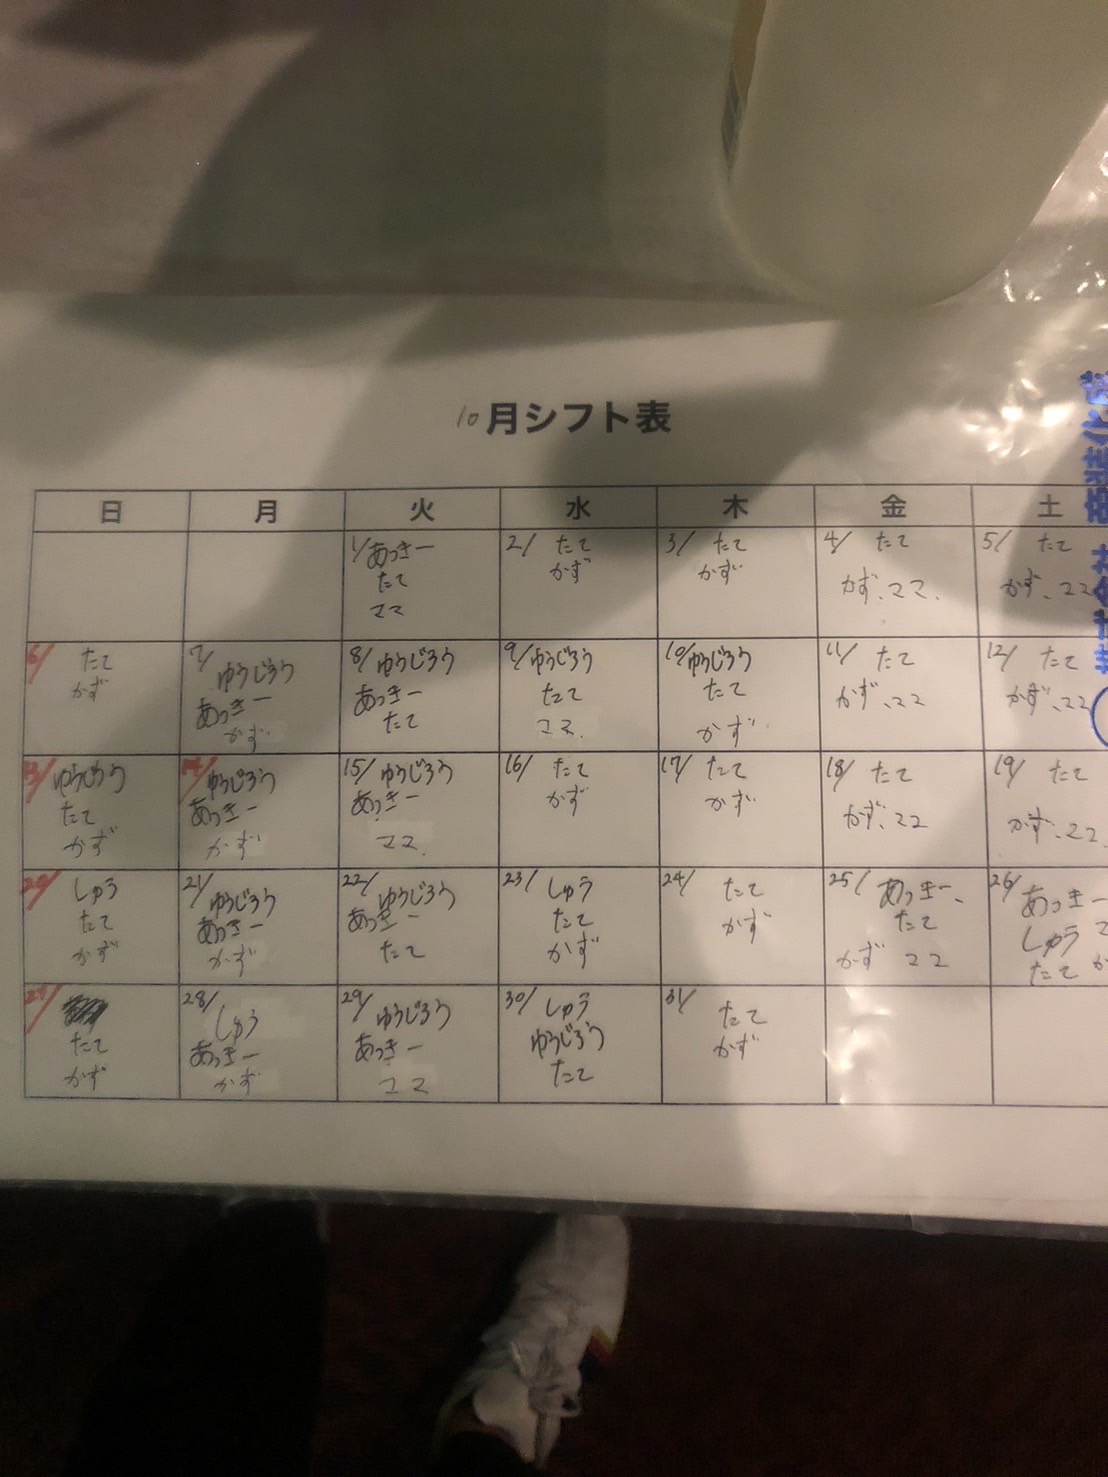 10月シフト表
日 月 火 水 木 金 土
1/ あっきー
たて
ママ
2/ たて
かず
3/ たて
かず
4/ たて
かず、ママ.
5/ たて
かず、ママ
6/ たて
かず
7/ ゆうじろう
あっきー
かず
8/ ゆうじろう
あっきー
たて
9/ ゆうじろう
たて
ママ.
10/ ゆうじろう
たて
かず
11/ たて
かず、ママ
12/ たて
かず、ママ
13/ ゆうじろう
たて
かず
14/ ゆうじろう
あっきー
かず
15/ ゆうじろう
あっきー
ママ.
16/ たて
かず
17/ たて
かず
18/ たて
かず、ママ
19/ たて
かず、ママ.
20/ しゅう
たて
かず
21/ ゆうじろう
あっきー
かず
22/ ゆうじろう
あっきー
たて
23/ しゅう
たて
かず
24/ たて
かず
25/ あっきー、
たて
かず ママ
26/ あっきー
しゅう マ
たて か
27/
たて
かず
28/ しゅう
あっきー
かず
29/ ゆうじろう
あっきー
ママ
30/ しゅう
ゆうじろう
たて
31/ たて
かず